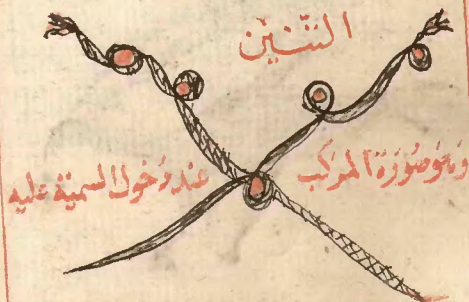 التنين
وهو صورة المركب عند دخول السمية عليه